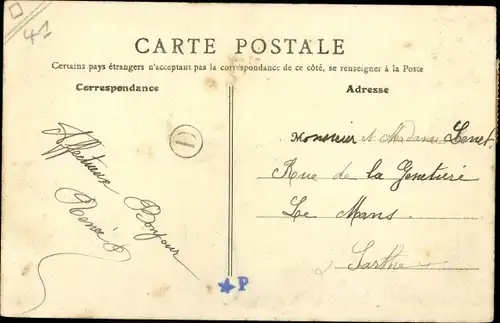 41
CARTE POSTALE
Certains pays étrangers n'acceptant pas la correspondance de ce côté, se renseigner à la Poste
Correspondance
Adresse
D
Affectueux Bonjour
René
Monsieur et Madame
Rue de la
Le Mans
Sarthe
★P